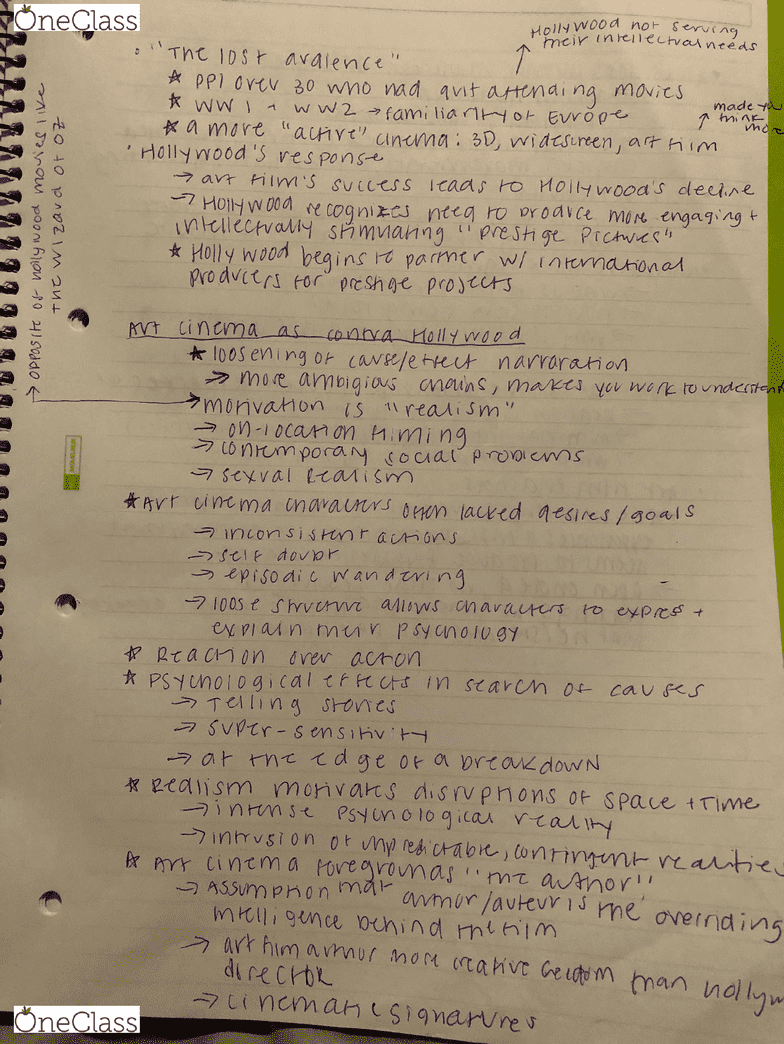 OneClass
Hollywood not serving
their intellectual needs
• "The lost audience"
★ ppl over 30 who had quit attending movies
★ WW1 + WW2 → familiarity of Europe
made you
think
more
★ a more "active" cinema: 3D, widescreen, art film
• Hollywood's response
→ art film's success leads to Hollywood's decline
→ Hollywood recognizes need to produce more engaging +
intellectually stimulating "prestige pictures"
★ Hollywood begins to partner w/ international
producers for prestige projects
→ opposite of hollywood movies like
the wizard of oz
Art cinema as contra Hollywood
★ loosening of cause/effect narroration
→ more ambigious chains, makes you work to understand
→ motivation is "realism"
→ on-location filming
→ contemporary social problems
→ sexual realism
★ Art cinema characters often lacked desires/goals
→ inconsistent actions
→ self doubt
→ episodic wandering
→ loose structure allows characters to express +
explain their psychology
★ Reaction over action
★ psychological effects in search of causes
→ Telling stories
→ super-sensitivity
→ at the edge of a breakdown
★ Realism motivates disruptions of space + time
→ intense psychological reality
→ intrusion of unpredictable, contingent realities
★ Art cinema foregrounds "the author"
→ Assumption that author/auteur is the overriding
intelligence behind the film
→ art film author more creative freedom than hollyw
director
→ cinematic signatures
OneClass